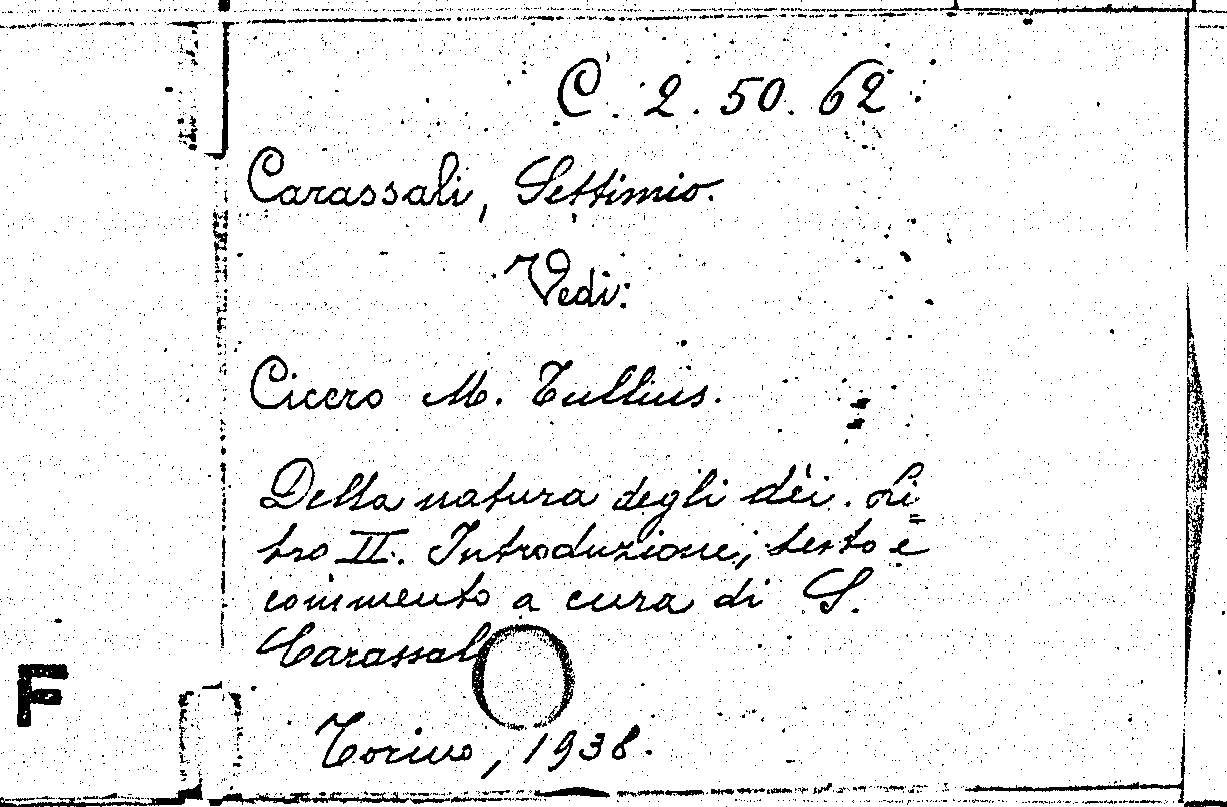 C. 2. 50. 62
Carassali, Settimio.
Vedi:
Cicero M. Tullius.
Della natura degli dèi. Li=
bro II. Introduzione, testo e
commento a cura di S.
Carassali
Torino, 1938.
F